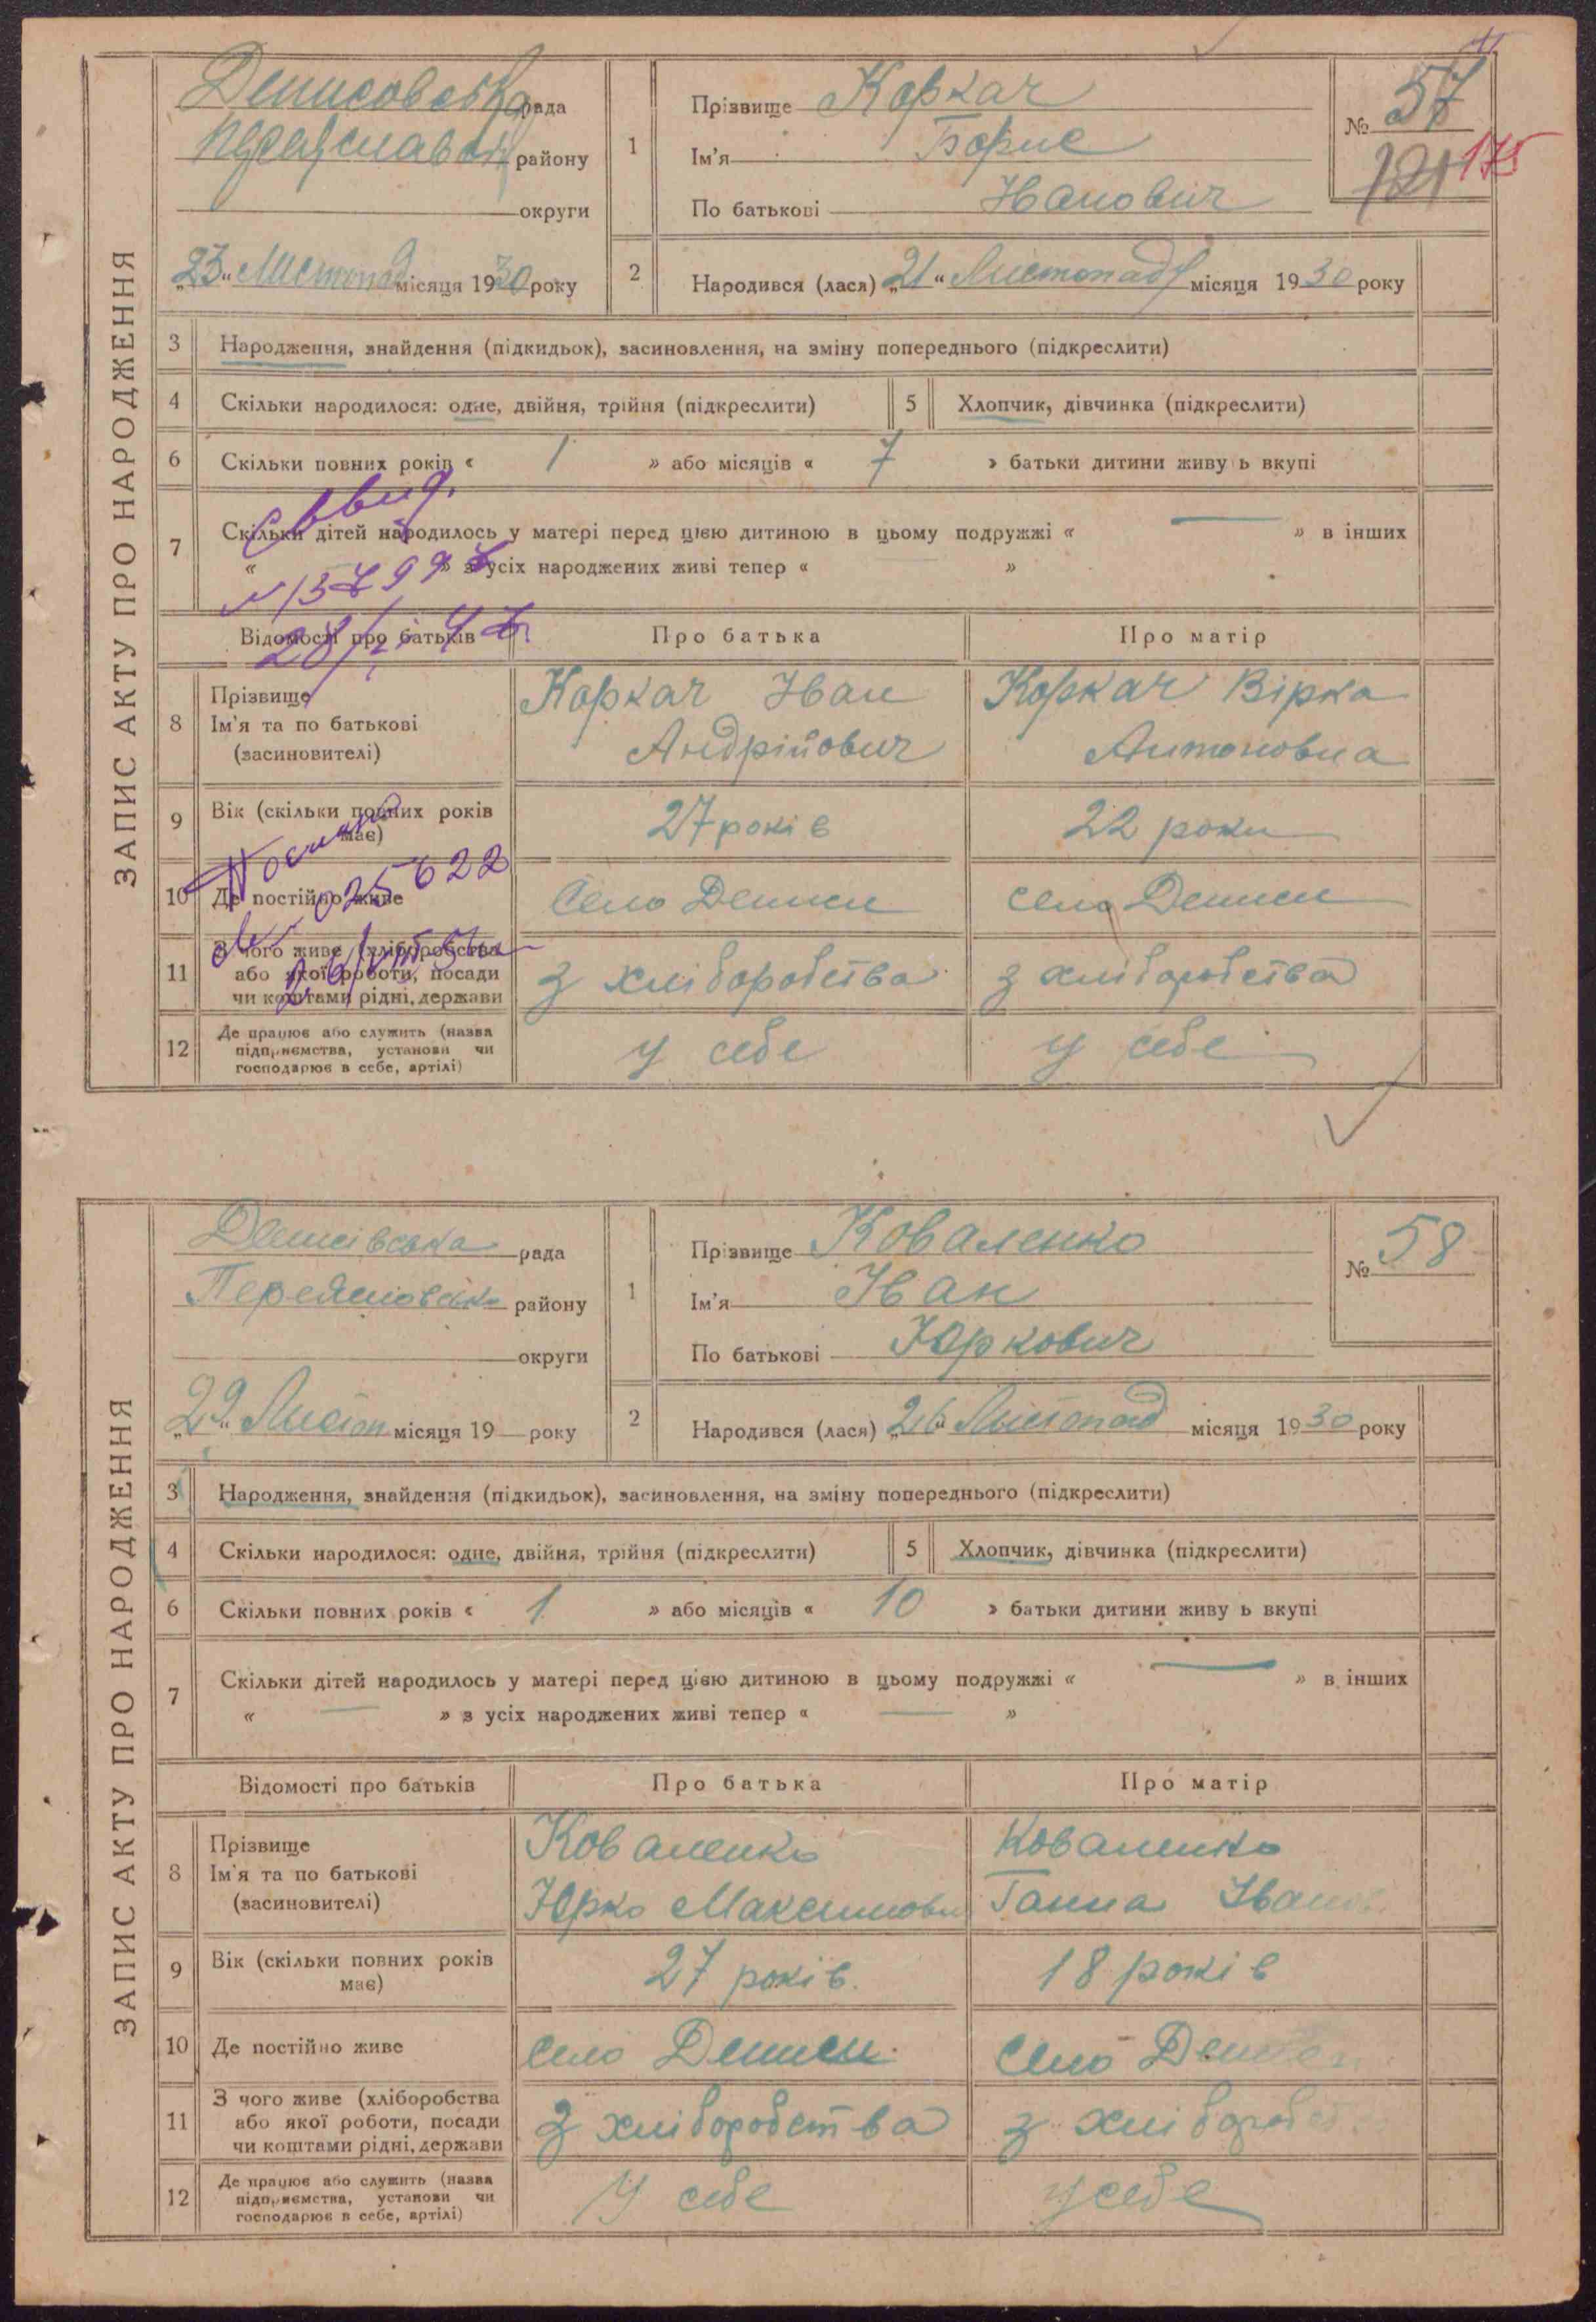 ЗАПИС АКТУ ПРО НАРОДЖЕННЯ
Денисовська рада
району
округи
„23“ Листопад місяця 1930 року
1 Прізвище Коркач
Ім'я Борис
По батькові Іванович
№ 57
121 175
2 Народився (лася) „21“ Листопад місяця 1930 року
3 Народження, знайдення (підкидьок), засиновлення, на зміну попереднього (підкреслити)
4 Скільки народилося: одне, двійня, трійня (підкреслити) 5 Хлопчик, дівчинка (підкреслити)
6 Скільки повних років « 1 » або місяців « 7 » батьки дитини живу ь вкупі
7 Скільки дітей народилось у матері перед цією дитиною в цьому подружжі « — » в інших
« » з усіх народжених живі тепер « »
Відомості про батьків Про батька Про матір
8 Прізвище Ім'я та по батькові (засиновителі)
Коркач Іван Андрійович
Коркач Вірка Антоновна
9 Вік (скільки повних років має) 27 років 22 роки
10 Де постійно живе Село Дениси село Дениси
№ 025622
11 З чого живе (хліборобства або якої роботи, посади чи коштами рідні, держави
з хліборобства з хліборобства
12 Де працює або служить (назва підприємства, установи чи господарює в себе, артілі)
у себе у себе
ЗАПИС АКТУ ПРО НАРОДЖЕННЯ
Денисівська рада
району
округи
„29“ Листоп місяця 19 — року
1 Прізвище Коваленко
Ім'я Іван
По батькові Юркович
№ 58
2 Народився (лася) „26“ Листопад місяця 1930 року
3 Народження, знайдення (підкидьок), засиновлення, на зміну попереднього (підкреслити)
4 Скільки народилося: одне, двійня, трійня (підкреслити) 5 Хлопчик, дівчинка (підкреслити)
6 Скільки повних років « 1 » або місяців « 10 » батьки дитини живу ь вкупі
7 Скільки дітей народилось у матері перед цією дитиною в цьому подружжі « — » в інших
« — » з усіх народжених живі тепер « — »
Відомості про батьків Про батька Про матір
8 Прізвище Ім'я та по батькові (засиновителі)
Коваленко Юрко Максимови
Коваленко Ганна Іванов
9 Вік (скільки повних років має) 27 років. 18 років
10 Де постійно живе село Дениси. село Дениси
11 З чого живе (хліборобства або якої роботи, посади чи коштами рідні, держави
з хліборобства з хлібороб
12 Де працює або служить (назва підприємства, установи чи господарює в себе, артілі)
У себе у себе